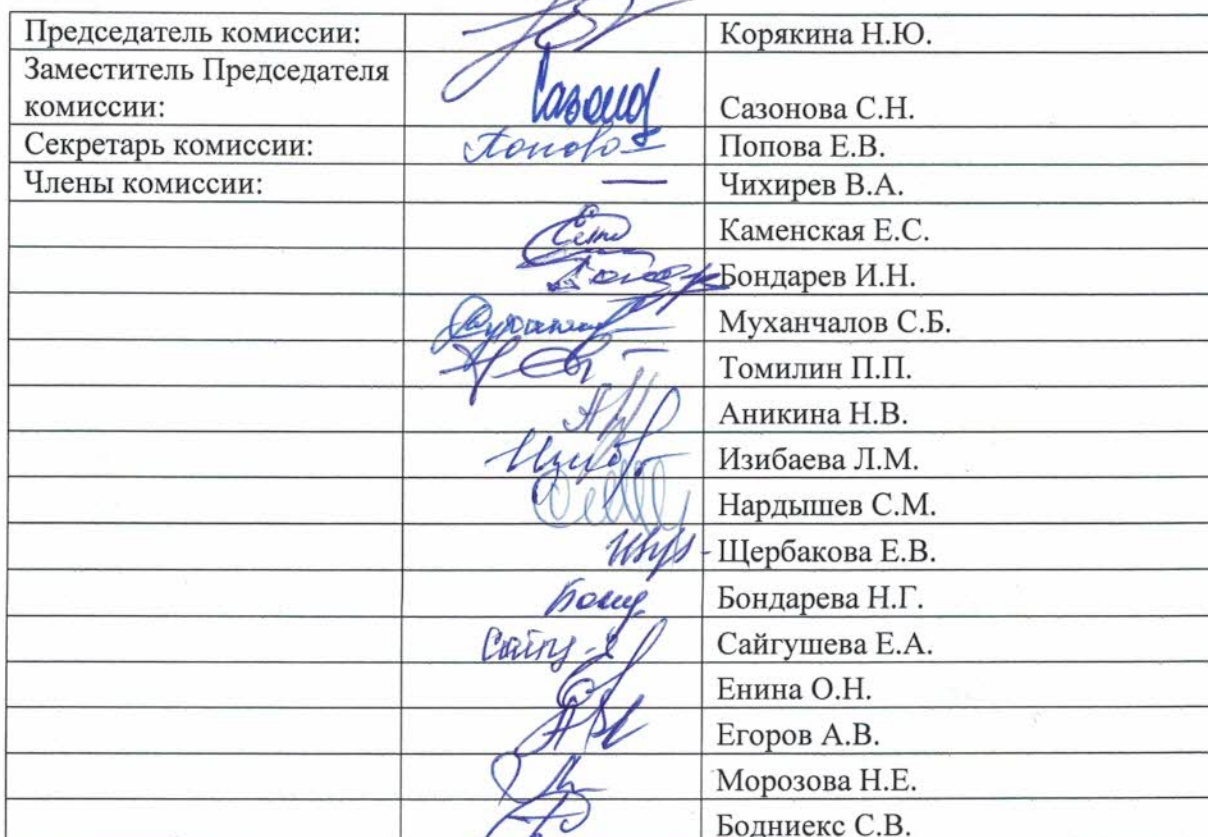 Председатель комиссии: Корякина Н.Ю.
Заместитель Председателя
комиссии: Сазонова С.Н.
Секретарь комиссии: Попова Е.В.
Члены комиссии: Чихирев В.А.
Каменская Е.С.
Бондарев И.Н.
Муханчалов С.Б.
Томилин П.П.
Аникина Н.В.
Изибаева Л.М.
Нардышев С.М.
Щербакова Е.В.
Бондарева Н.Г.
Сайгушева Е.А.
Енина О.Н.
Егоров А.В.
Морозова Н.Е.
Бодниекс С.В.